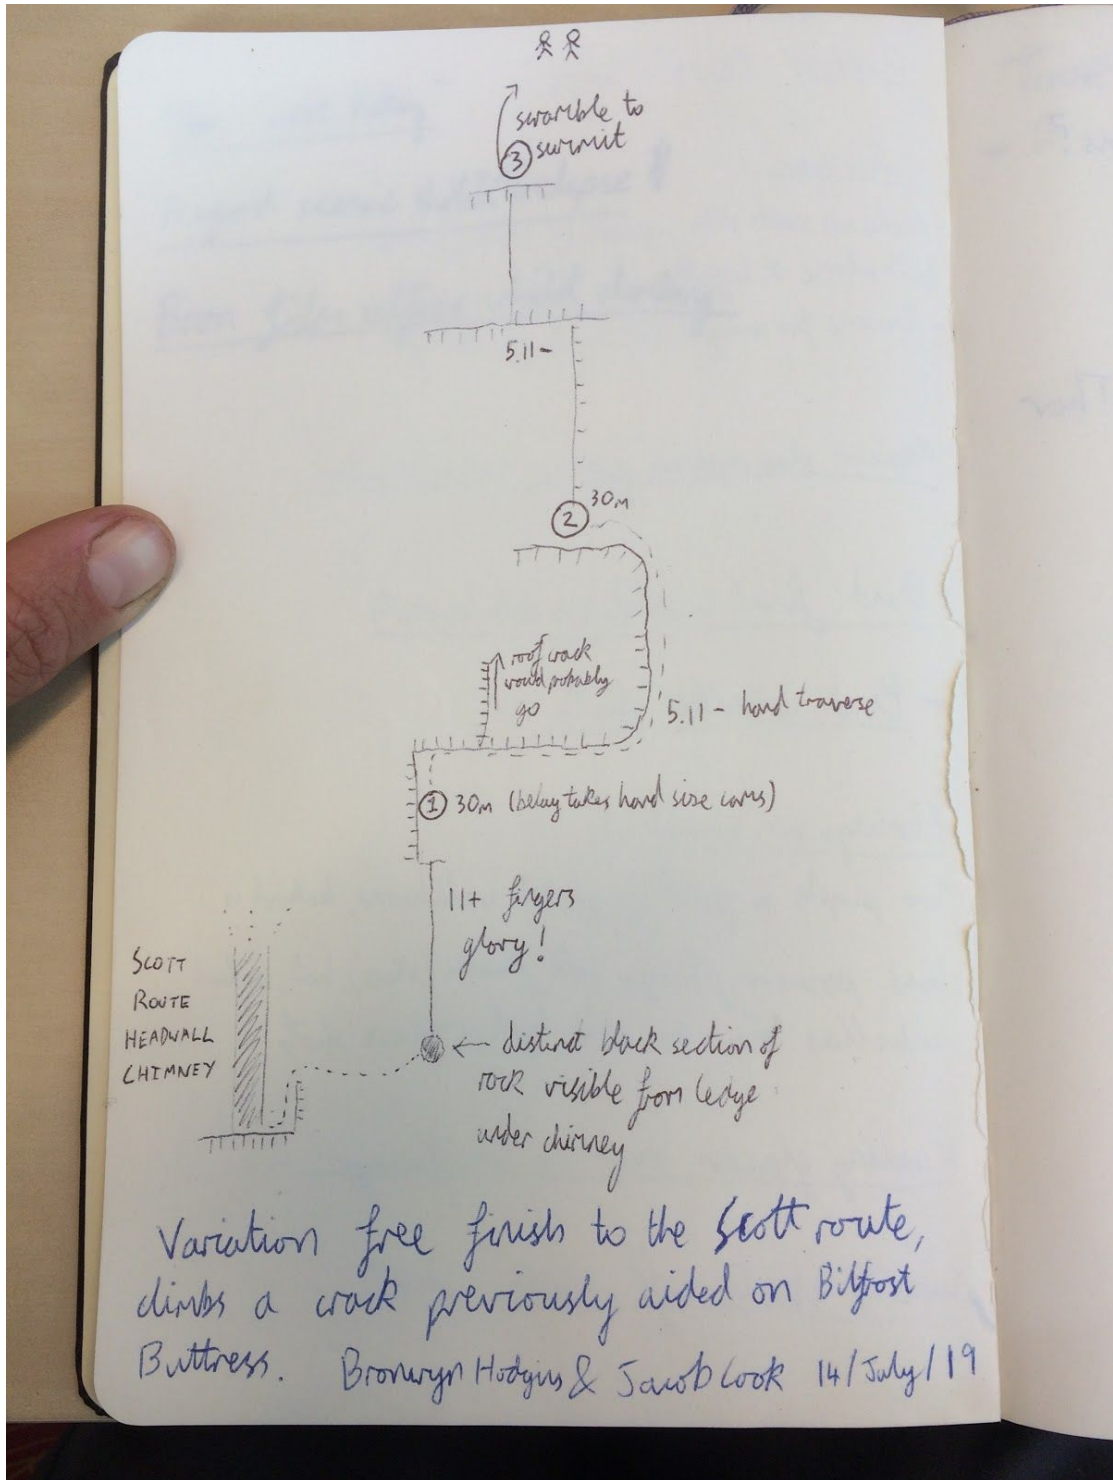 scramble to
③ summit
5.11-
② 30m
roof crack
would probably
go
5.11- hand traverse
① 30m (belay takes hand size cams)
11+ fingers
glory!
SCOTT
ROUTE
HEADWALL
CHIMNEY
← distinct black section of
rock visible from ledge
under chimney
Variation free finish to the Scott route,
climbs a crack previously aided on Bilfrost
Buttress. Bronwyn Hodgins & Jacob Cook 14/July/19
Thor